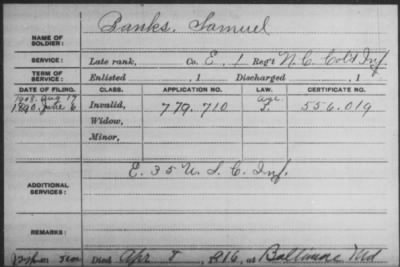 Banks, Samuel
NAME OF SOLDIER:
SERVICE: Late rank, Co. E, 1 Reg't N.C. Col'd Inf.
TERM OF SERVICE: Enlisted , 1 Discharged , 1
DATE OF FILING. CLASS. APPLICATION NO. LAW. CERTIFICATE NO.
1908. Aug 17 Age
1890. June 6 Invalid, 779.710 556.019
Widow,
Minor,
E. 35 U.S.C. Inf.
ADDITIONAL SERVICES:
REMARKS:
Died Apr 8, 1916, at Baltimore Md